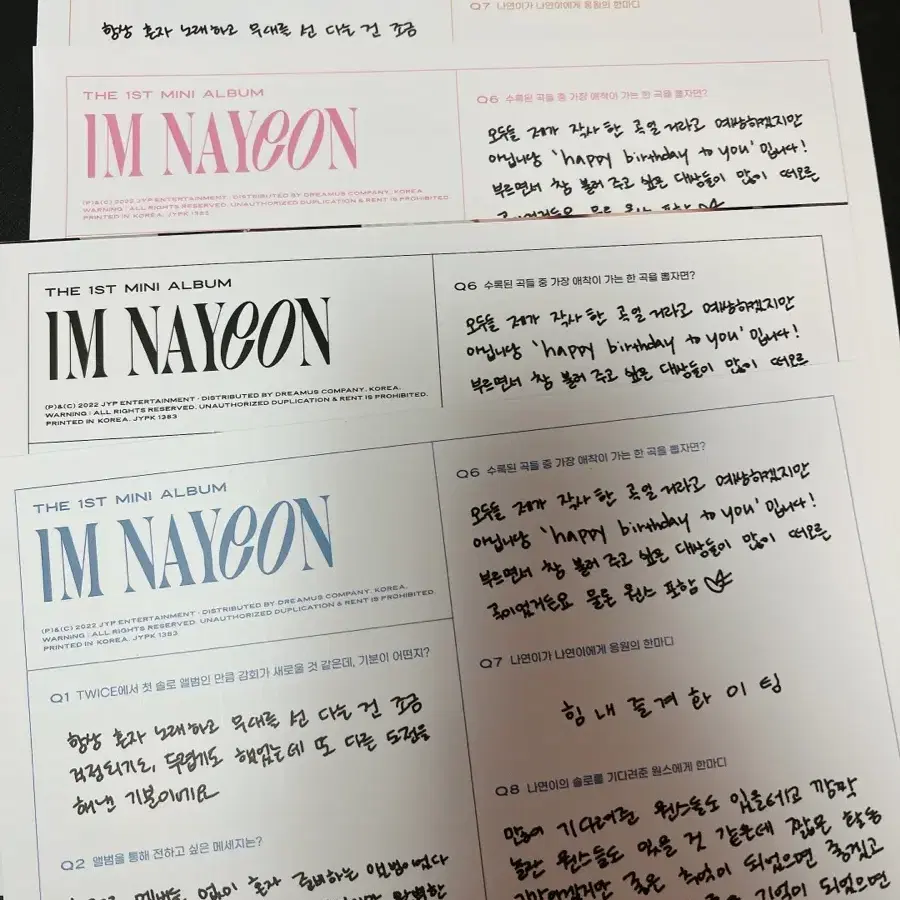 항상 혼자 노래하고 무대를 선 다는 건 조금
Q7 나연이가 나연이에게 응원의 한마디
THE 1ST MINI ALBUM
IM NAYEON
(P)&(C) 2022 JYP ENTERTAINMENT · DISTRIBUTED BY DREAMUS COMPANY, KOREA.
WARNING : ALL RIGHTS RESERVED. UNAUTHORIZED DUPLICATION & RENT IS PROHIBITED.
PRINTED IN KOREA. JYPK 1383
Q6 수록된 곡들 중 가장 애착이 가는 한 곡을 뽑자면?
모두들 제가 작사 한 곡일 거라고 예상하겠지만
아닙니당 'happy birthday to you' 입니다!
부르면서 참 불러 주고 싶은 대상들이 많이 떠오르
곡이었거든요 물론 원스 포함
THE 1ST MINI ALBUM
IM NAYEON
(P)&(C) 2022 JYP ENTERTAINMENT · DISTRIBUTED BY DREAMUS COMPANY, KOREA.
WARNING : ALL RIGHTS RESERVED. UNAUTHORIZED DUPLICATION & RENT IS PROHIBITED.
PRINTED IN KOREA. JYPK 1383
Q6 수록된 곡들 중 가장 애착이 가는 한 곡을 뽑자면?
모두들 제가 작사 한 곡일 거라고 예상하겠지만
아닙니당 'happy birthday to you' 입니다!
부르면서 참 불러 주고 싶은 대상들이 많이 떠오르
THE 1ST MINI ALBUM
IM NAYEON
(P)&(C) 2022 JYP ENTERTAINMENT · DISTRIBUTED BY DREAMUS COMPANY, KOREA.
WARNING : ALL RIGHTS RESERVED. UNAUTHORIZED DUPLICATION & RENT IS PROHIBITED.
PRINTED IN KOREA. JYPK 1383
Q1 TWICE에서 첫 솔로 앨범인 만큼 감회가 새로울 것 같은데, 기분이 어떤지?
항상 혼자 노래하고 무대를 선 다는 건 조금
걱정되기도, 두렵기도 했었는데 또 다른 도전을
해낸 기분이에요
Q2 앨범을 통해 전하고 싶은 메세지는?
멤버들 없이 혼자 준비하는 앨범이었다
완벽한
Q6 수록된 곡들 중 가장 애착이 가는 한 곡을 뽑자면?
모두들 제가 작사 한 곡일 거라고 예상하겠지만
아닙니당 'happy birthday to you' 입니다!
부르면서 참 불러 주고 싶은 대상들이 많이 떠오르
곡이었거든요 물론 원스 포함
Q7 나연이가 나연이에게 응원의 한마디
힘 내 즐겨 화 이 팅
Q8 나연이의 솔로를 기다려준 원스에게 한마디
많이 기다려준 원스들도 있을테고 깜짝
놀란 원스들도 있을 것 같은데 짧은 활동
좋은 추억이 되었으면 좋겠고
기억이 되었으면